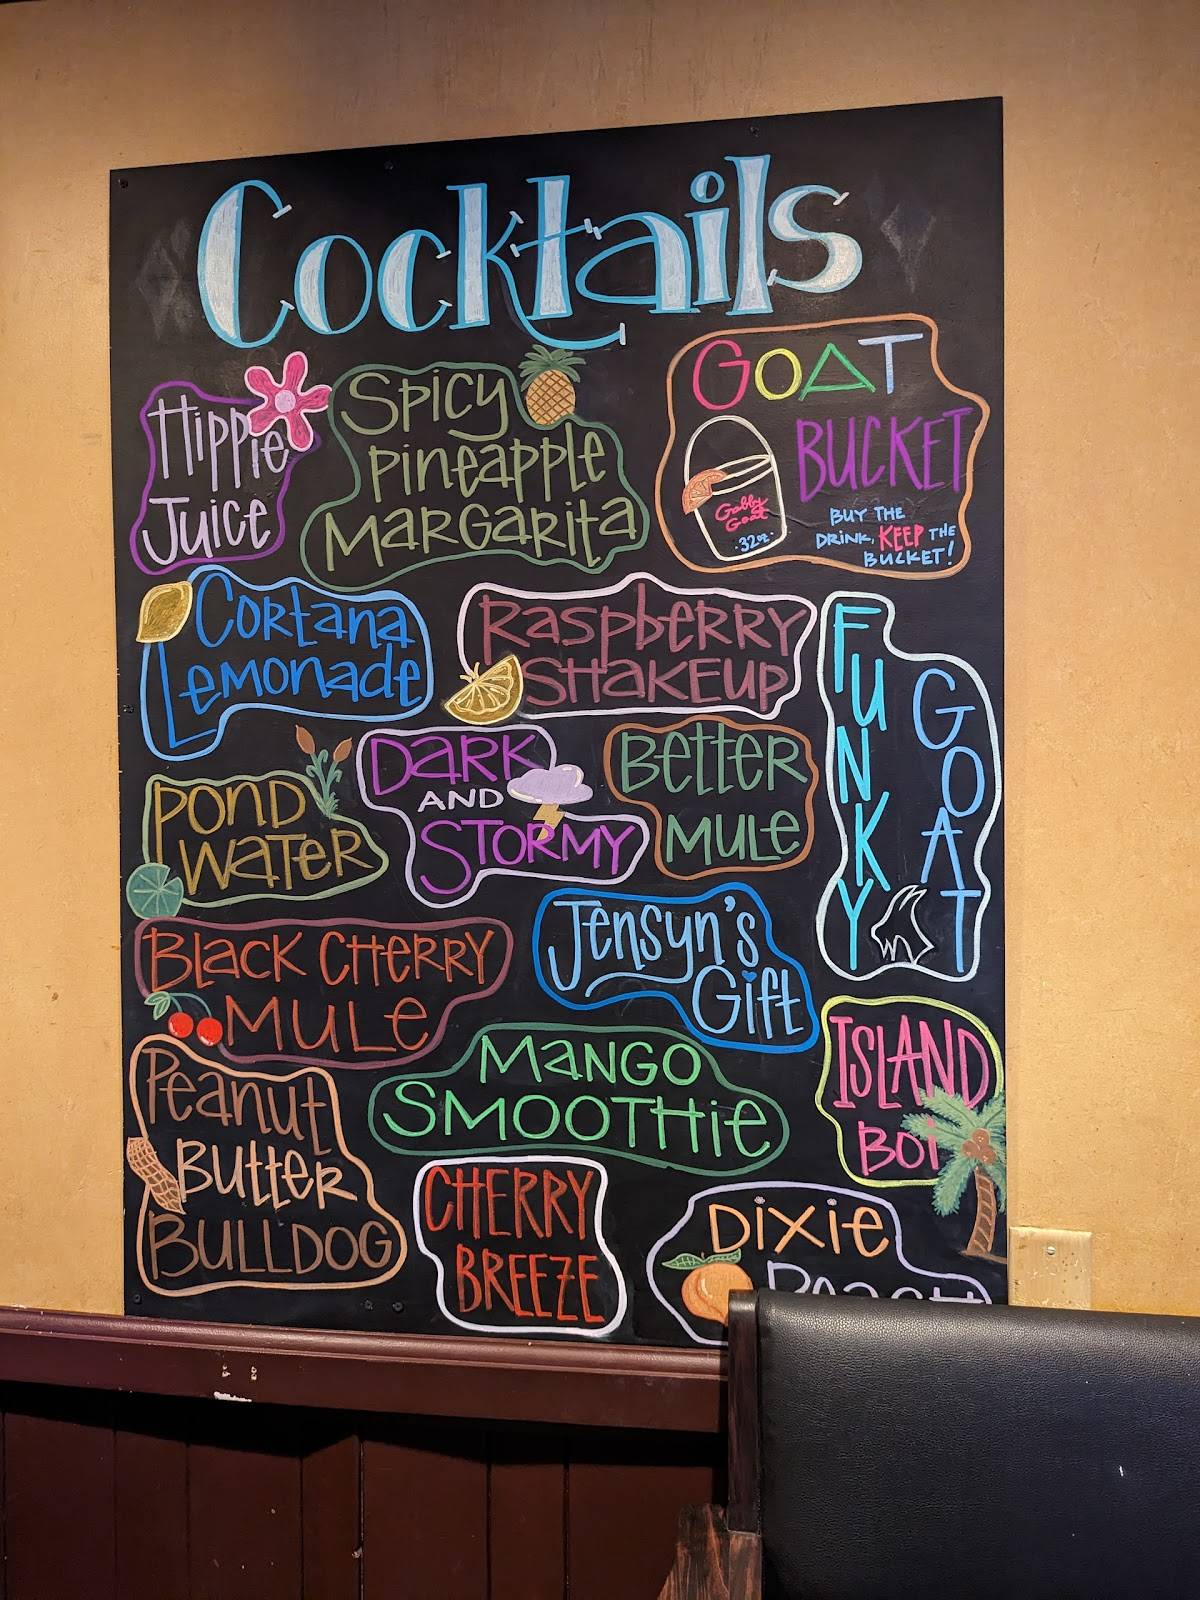 Cocktails
Hippie
Juice
Spicy
Pineapple
Margarita
GOAT
BUCKET
Gabby
Goat
32oz.
BUY THE
DRINK, KEEP THE
BUCKET!
Cortana
Lemonade
Raspberry
Shakeup
FUNKY
GOAT
Pond
Water
Dark
AND
Stormy
Better
Mule
Black Cherry
Mule
Jensyn's
Gift
ISLAND
BOi
Peanut
Butter
Bulldog
Mango
Smoothie
CHERRY
BREEZE
Dixie